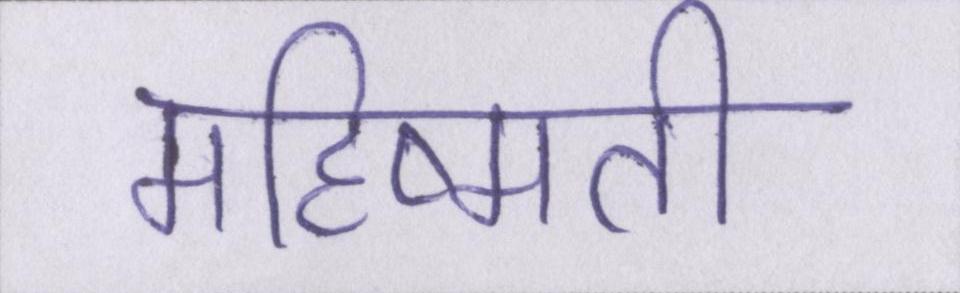 महिष्मती